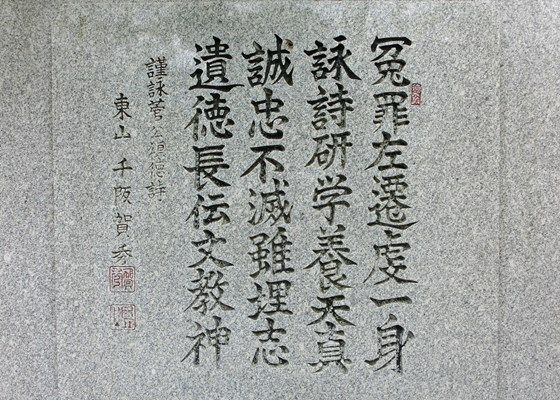 冤罪左遷虔一身
詠詩研学養天真
誠忠不滅雖埋志
遺徳長伝文教神
謹詠菅公遺徳詩
東山 千阪賀秀